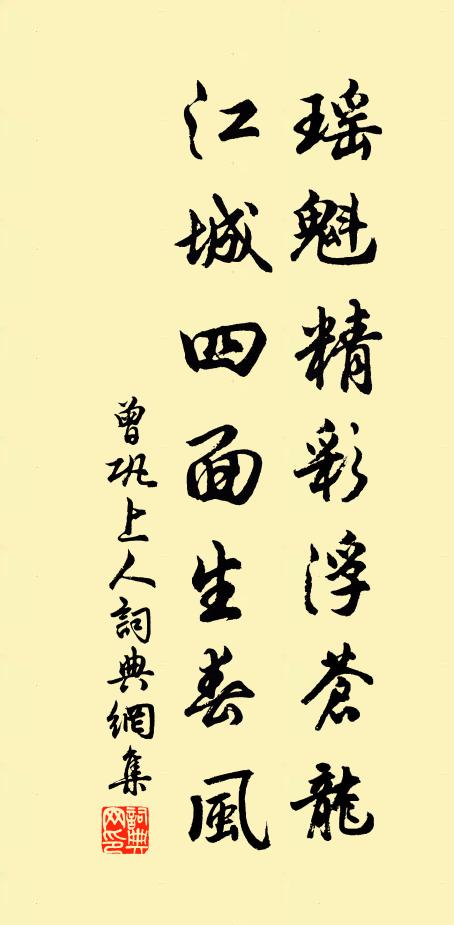 瑶魁精彩浮蒼龍
江城四面生春風
曾巩上人詞典網集
詞典网印